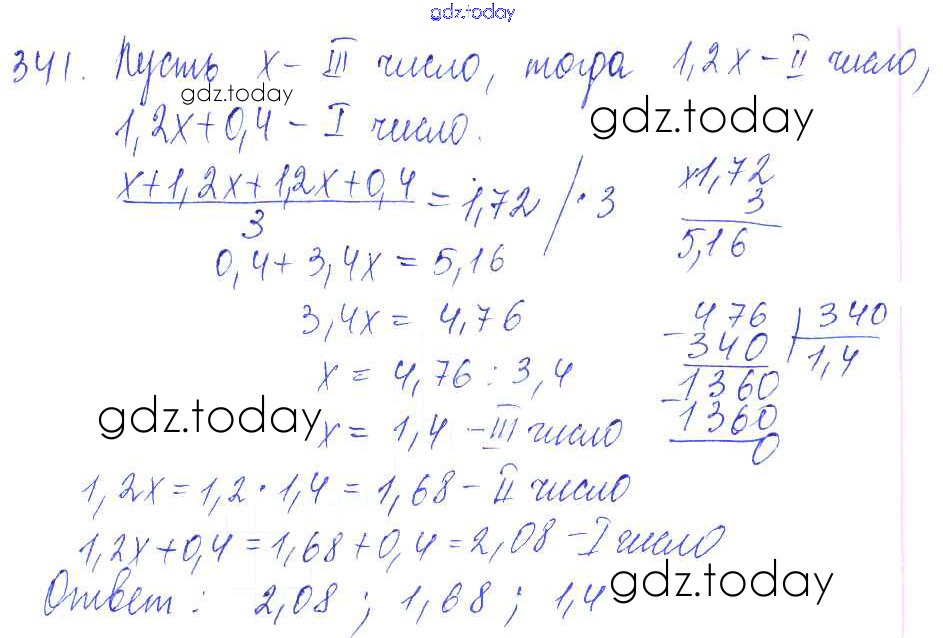 gdz.today
341. Пусть x – III число, тогда 1,2x – II число,
gdz.today
gdz.today
1,2x+0,4 – I число.
x+1,2x+1,2x+0,4
3
= 1,72 / · 3
×1,72
3
5,16
0,4+3,4x = 5,16
3,4x = 4,76
x = 4,76 : 3,4
476 | 340
– 340 1,4
1360
– 1360
0
gdz.today
x = 1,4 – III число
1,2x = 1,2 · 1,4 = 1,68 – II число
1,2x+0,4 = 1,68+0,4 = 2,08 – I число
Ответ: 2,08; 1,68; 1,4
gdz.today